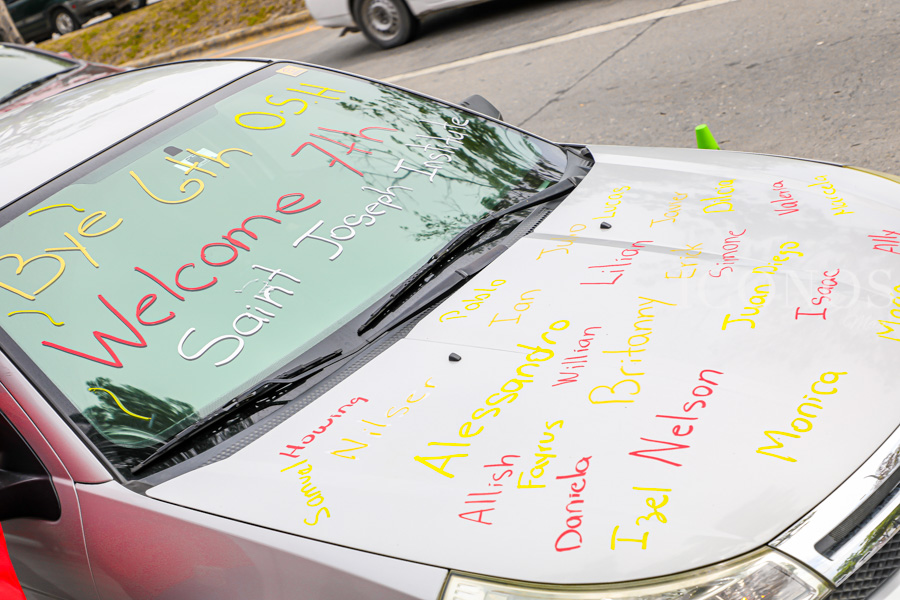 Bye 6th OSH
Welcome 7th
Saint Joseph Institute
Samuel
Howing
Nilser
Pablo
Ian
Julio
Lucas
Javier
Valeria
Alessandro
Willian
Lilian
Erick
Simone
Allish
Fayrus
Britanny
Juan Diego
Isaac
Ally
Daniela
Izel
Nelson
Monica
ICONOS